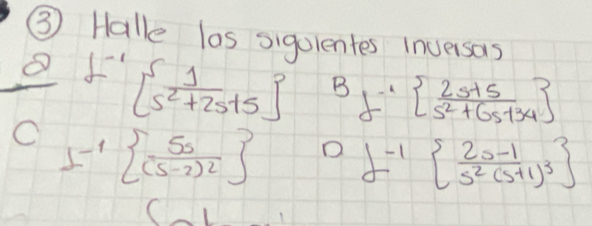 ③ Halle las siguientes inversas
a £⁻¹ { 1 / s²+2s+5 } B £⁻¹ { 2s+5 / s²+6s+34 }
C £⁻¹ { 5s / (s-2)² } D £⁻¹ { 2s-1 / s²(s+1)³ }